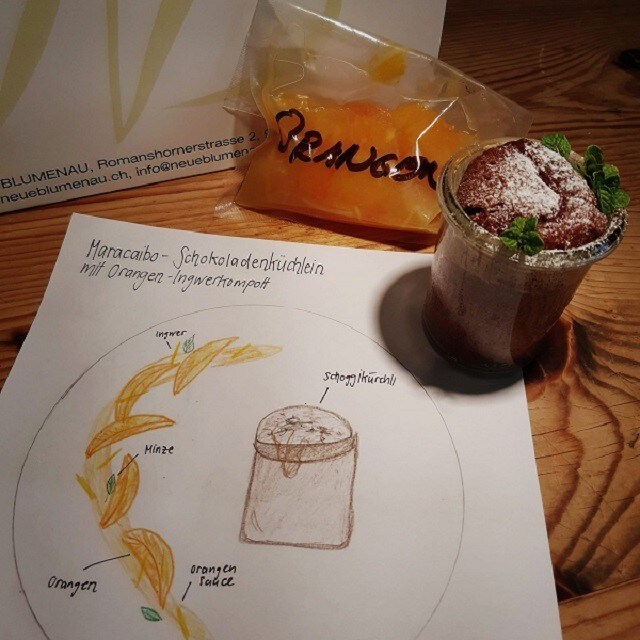 BLUMENAU, Romanshornerstrasse 2,
neueblumenau.ch, info@neueblumen
ORANGEN
Maracaibo-Schokoladenküchlein
mit Orangen-Ingwerkompott
Ingwer
schoggiküechli
Minze
Orangen
orangen
sauce